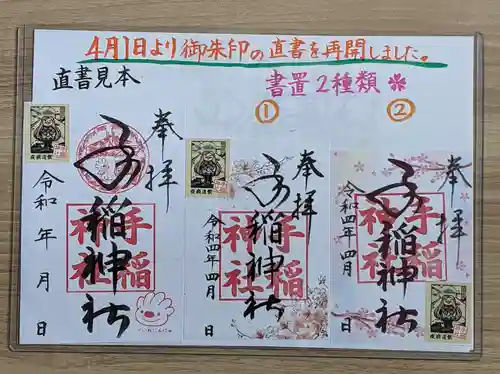 4月1日より御朱印の直書を再開しました。
直書見本
書置2種類
①
②
奉拝
手稲神社
令和 年 月 日
手稲神社
奉拝
手稲神社
令和四年四月 日
手稲神社
奉拝
手稲神社
令和四年四月 日
手稲神社